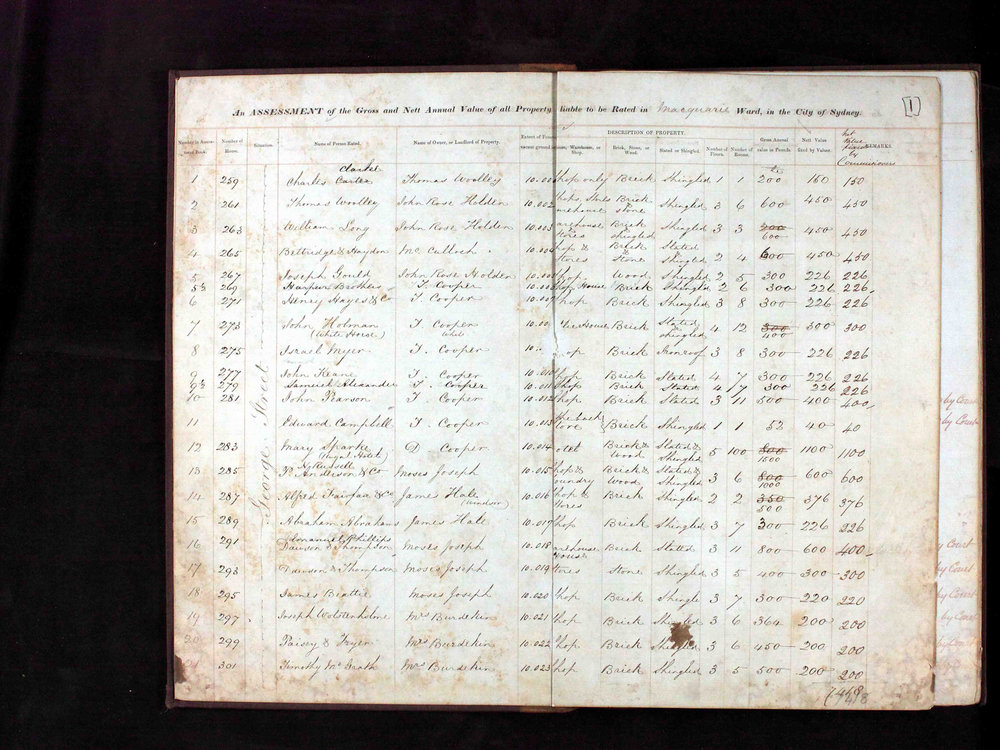 An ASSESSMENT of the Gross and Nett Annual Value of all Property liable to be Rated in Macquarie Ward, in the City of Sydney.
1
DESCRIPTION OF PROPERTY.
Number of House. Situation. Name of Person Rated. Name of Owner, or Landlord of Property. Brick, Stone, or Wood. Slated or Shingled. Number of Floors. Number of Rooms. Gross Annual value in Pounds. Nett Value fixed by Valuer. Net Value by Commissioners REMARKS.
George Street
1 259 Charles Carter Clarke Thomas Woolley 10.001 hop only Brick Shingled 1 1 200 150 150
2 261 Thomas Woolley John Rose Holden 10.002 Brick Stone Shingled 3 6 600 450 450
3 263 William Long John Rose Holden 10.003 arehouse Stores Brick Shingled Shingled 3 3 600 450 450
4 265 Bettridge & Haydon Mc Culloch 10.004 hop & Stores Brick Stone Slated Shingled 2 4 600 450 450
5 267 Joseph Gould John Rose Holden hop Wood Shingled 2 5 300 226 226
5½ 269 Brothers T Cooper House Brick Shingled 2 6 300 226 226
6 271 Henry Hayes & Co T Cooper 10.007 hop Brick Shingled 3 8 300 226 226
7 273 John Holman (White Horse) T. Cooper 10.00 House Brick Slated & Shingled 4 12 300 400 300 300
8 275 Israel Myer T. Cooper 10. op Brick Ironroof 3 8 300 226 226
9 277 John Keane T. Cooper 10.010 hop Brick Slated 4 7 300 226 226
9½ 279 Alexander T. Cooper 10.011 Shop Brick Slated 4 7 300 226 226
10 281 John Pearson T Cooper 10.012 hop Brick Slated 3 11 500 400 400
11 Edward Campbell T. Cooper 10.013 the back Store Brick Shingled 1 1 52 40 40
12 283 Mary Sparke (Royal Hotel) D Cooper 10.014 otel Brick & Wood Slated & Shingled 5 100 1500 1100 1100
13 285 P. Anderson & Co Moses Joseph 10.015 hop & oundry Brick & Wood Slated & Shingled 3 6 800 1000 600 600
14 287 Alfred Fairfax & Co James Hale (Windsor) 10.016 hop & Stores Brick Shingled 2 2 350 500 376 376
15 289 Abraham Abrahams James Hale 10.017 hop Brick Shingled 3 7 300 226 226
16 291 Emanuel Phillips Dawson & Thompson Moses Joseph 10.018 arehouse House Brick Slated 3 11 800 600 400
17 293 Dawson & Thompson Moses Joseph 10.019 tores Stone Shingled 3 5 400 300 300
18 295 James Beattie Moses Joseph 10.020 hop Brick Shingle 3 7 300 220 220
19 297 Joseph Wolstenholme Mrs Burdekin 10.021 hop Brick Shingled 3 6 364 200 200
20 299 Paisey & Fryer Mrs Burdekin 10.022 hop Brick Shingled 3 6 450 200 200
21 301 Timothy Mc Grath Mrs Burdekin 10.023 hop Brick Shingled 3 5 500 200 200
by Court
by Court
by Court
by Court